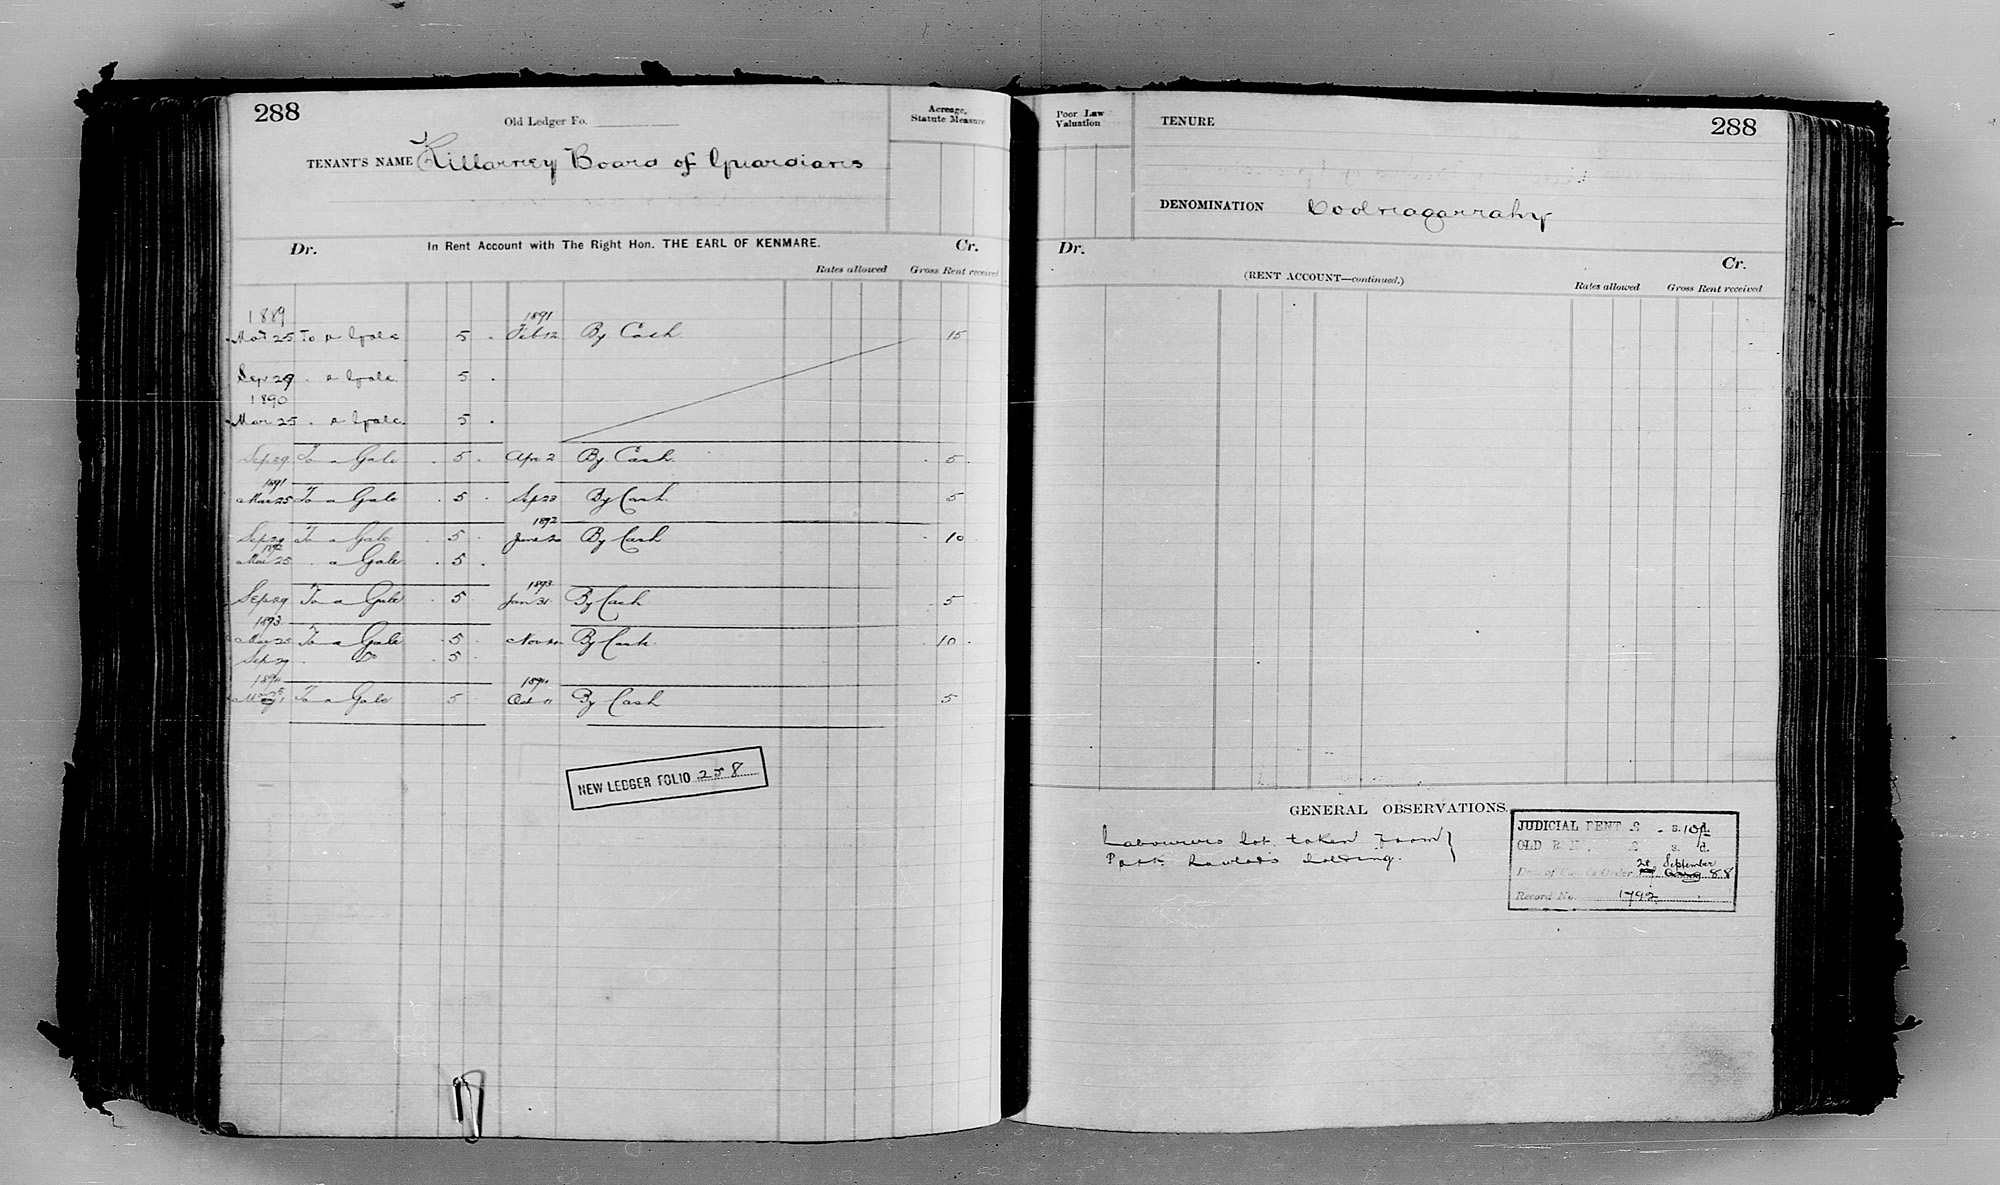 288
Old Ledger Fo.
Acreage, Statute Measure
TENANT'S NAME Killarney Board of Guardians
Dr. In Rent Account with The Right Hon. THE EARL OF KENMARE. Cr.
Rates allowed Gross Rent received
1889 1891
Mar 25 To a Gale 5 . Feb 12 By Cash 15
Sep 29 . a Gale 5 .
1890
Mar 25 . a Gale 5 .
Sep 29 To a Gale . 5 . Apr 2 By Cash . 5 .
1891
Mar 25 To a Gale . 5 . Sep 23 By Cash 5
1892
Sep 29 To a Gale . 5 . June 20 By Cash . 10 .
1892
Mar 25 . a Gale . 5 .
1893
Sep 29 To a Gale . 5 . Jan 31 By Cash . 5
1893
Mar 25 To a Gale . 5 . Nov By Cash . 10 .
Sep 29 . Do . 5 .
1894 1894
May 1 To a Gale 5 . Oct 11 By Cash 5
NEW LEDGER FOLIO 258
Poor Law Valuation
TENURE
288
DENOMINATION Coolnagarrahy
Dr. Cr.
(RENT ACCOUNT—continued.)
Rates allowed Gross Rent received
GENERAL OBSERVATIONS.
Labourers lot taken from
Patk holding.
JUDICIAL RENT £ . s. 10/- d.
OLD RENT, £ s. d.
September
Date of Court's Order 88
Record No. 1792